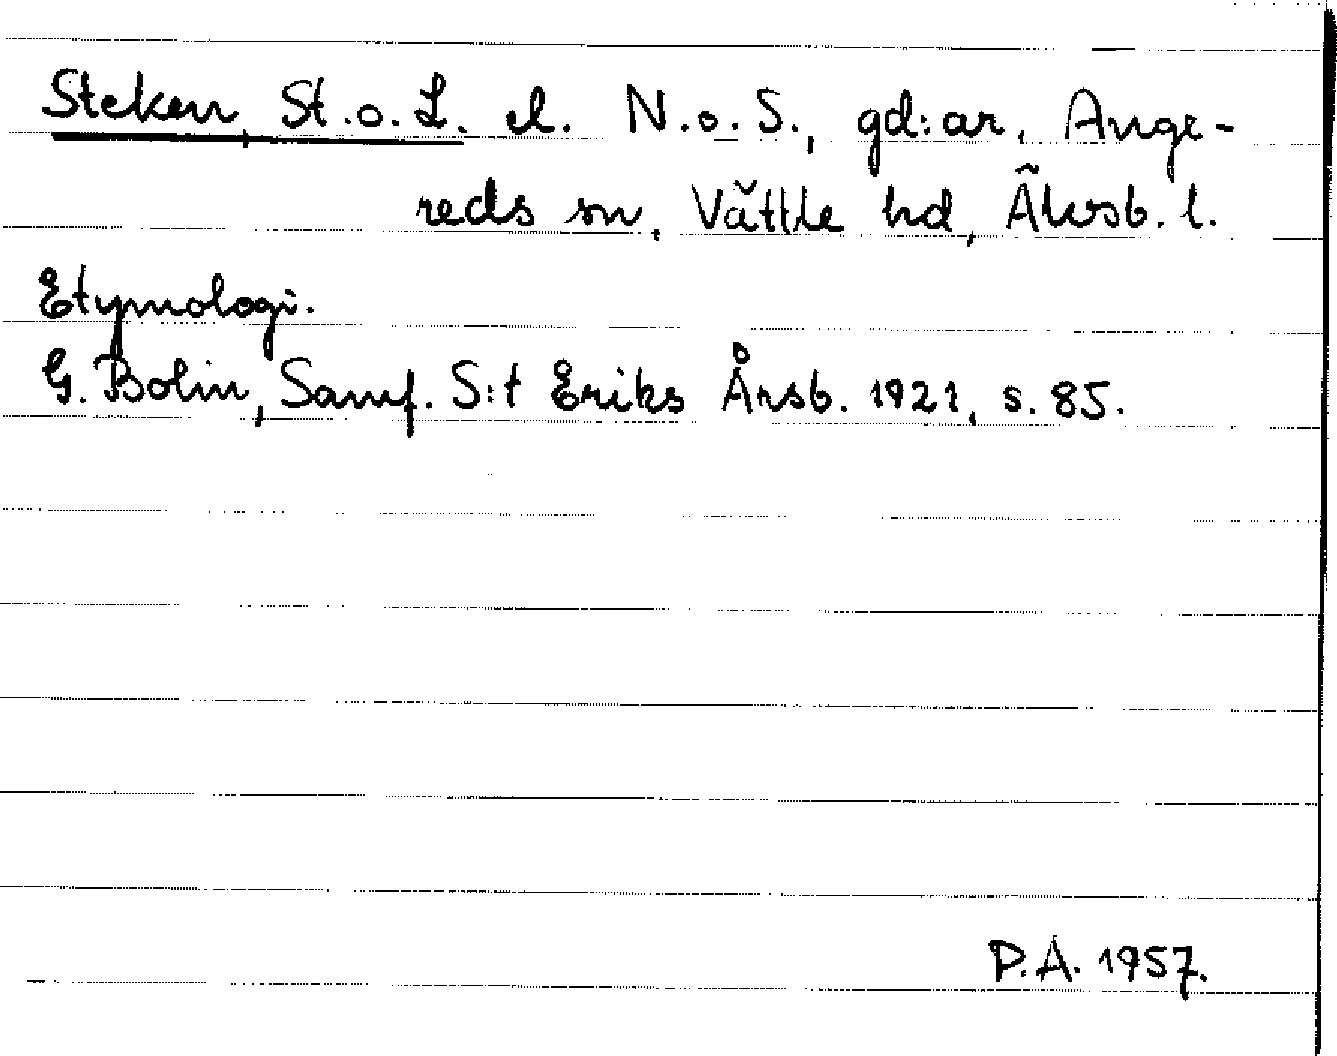 Steken, St. o. L. el. N. o. S., gd:ar, Ange-
reds sn, Vättle hd, Älvsb. l.
Etymologi.
G. Bolin, Samf. S:t Eriks Årsb. 1921, s. 85.
P.A. 1957.